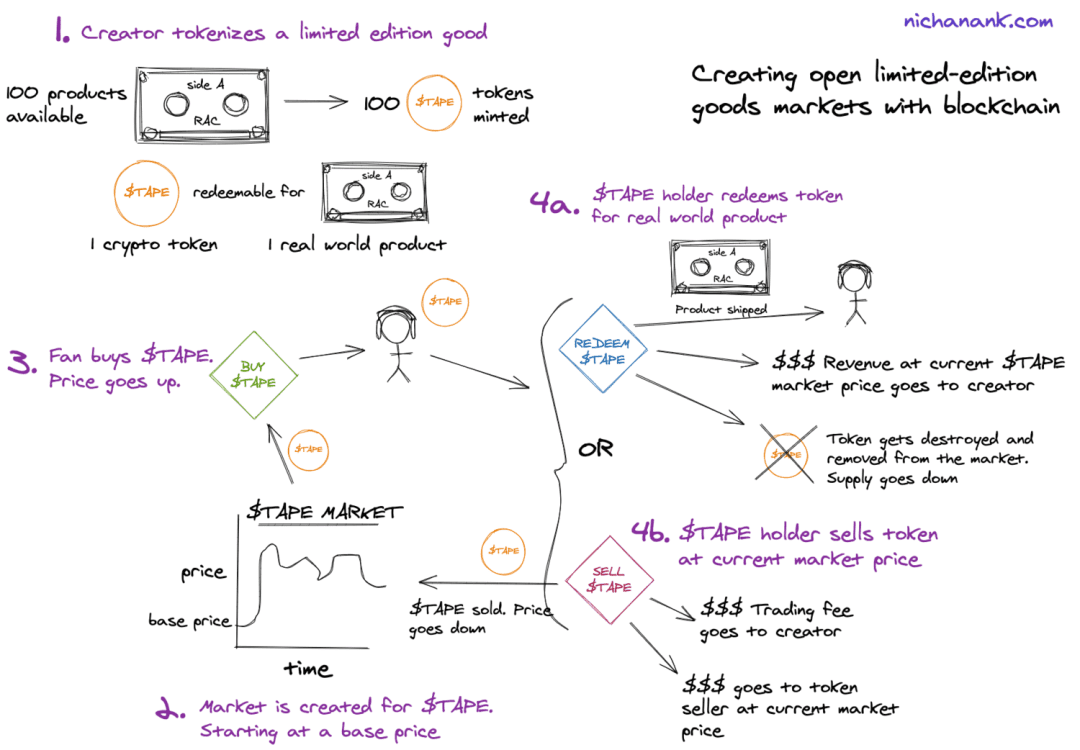 nichanank.com
Creating open limited-edition
goods markets with blockchain
1. Creator tokenizes a limited edition good
100 products
available
side A
RAC
100
$TAPE
tokens
minted
$TAPE
redeemable for
side A
RAC
1 crypto token
1 real world product
4a. $TAPE holder redeems token
for real world product
side A
RAC
Product shipped
REDEEM
$TAPE
$$$ Revenue at current $TAPE
market price goes to creator
$TAPE
Token gets destroyed and
removed from the market.
Supply goes down
3. Fan buys $TAPE.
Price goes up.
BUY
$TAPE
$TAPE
$TAPE
OR
$TAPE MARKET
price
base price
time
2. Market is created for $TAPE.
Starting at a base price
$TAPE
$TAPE sold. Price
goes down
4b. $TAPE holder sells token
at current market price
SELL
$TAPE
$$$ Trading fee
goes to creator
$$$ goes to token
seller at current market
price